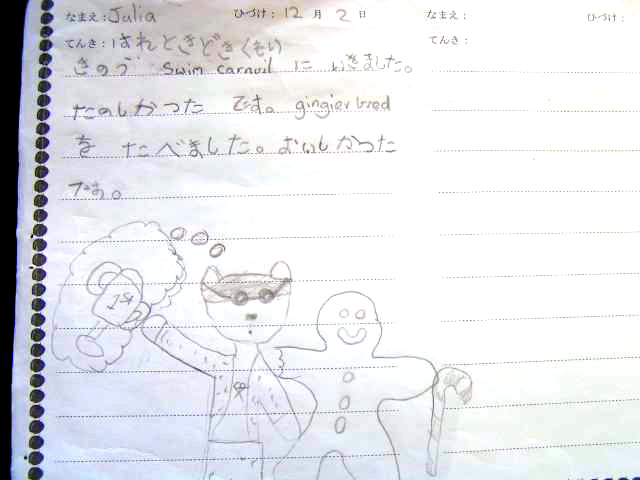 なまえ：Julia ひづけ：12月2日 なまえ： ひづけ：
てんき：はれときどきくもり てんき：
きのう swim carnvil に いきました。
たのしかつた です。gingier bred
を たべました。おいしかつた
です。
1st